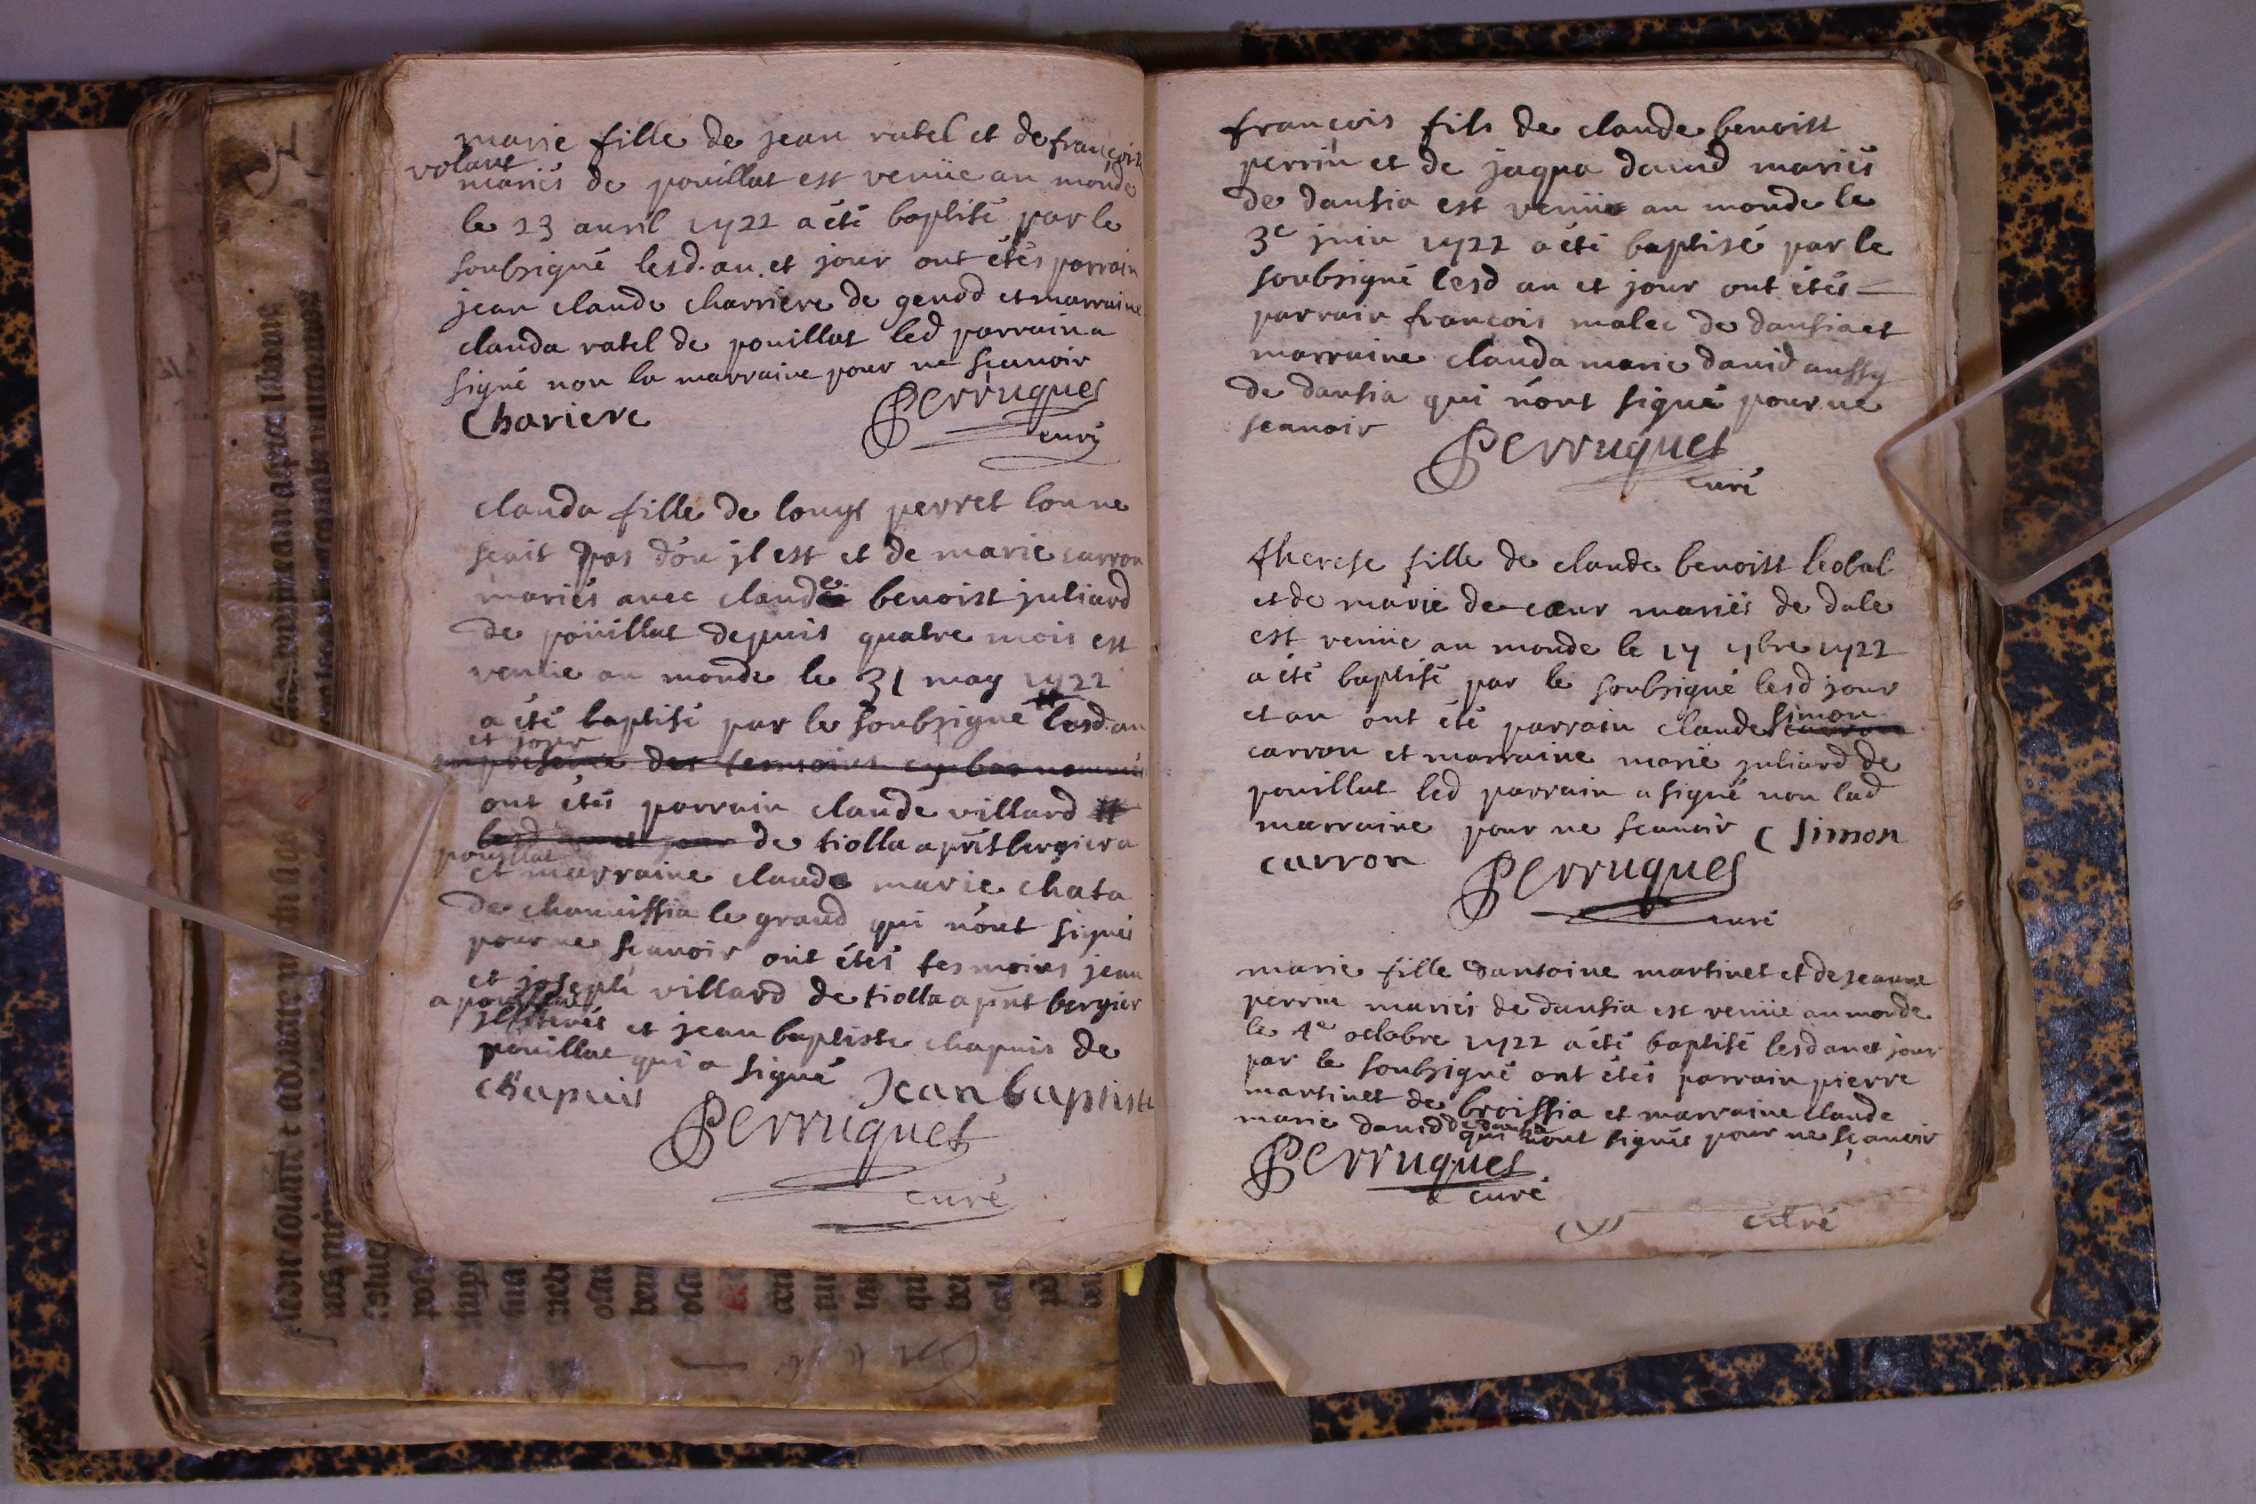 marie fille de jean ratel et de françoise
volant
mariés de pouillat est venüe au monde
le 23 auril 1722 a été baptisé par le
soubsigné lesd. an et jour ont étés parrain
jean claude charriere de genod et marraine
clauda ratel de pouillat led parrain a
signé non la marraine pour ne scauoir
Chariere Perruquet
curé
clauda fille de louys perret lon ne
scait pas d'ou jl est et de marie carron
mariés avec claude benoist juliard
de poüillat depuis quatre mois est
venüe au monde le 31 may 1722
a été baptisé par le soubsigné lesd. an
et jour
en presence des temoins cy bas nommés
ont étés parrain claude villard et
lesd an et jour de tiolla a pñt bergier a
pouillat
et marraine claude marie chata
de chauissia le grand qui n'ont signés
pour ne scauoir ont étés tesmoins jean
et joseph villard de tiolla a pñt bergier
a pouillat
jlliterés et jean baptiste chapuis de
pouillat qui a signé Jean baptiste
chapuis
Perruquet
curé
françois fils de claude benoist
perrin et de jaqua david mariés
de dansia est venüe au monde le
3e juin 1722 a été baptisé par le
soubsigné lesd an et jour ont étés
parrain françois malec de dansia et
marraine clauda marie david aussy
de dansia qui n'ont signé pour ne
scauoir Perruquet
curé
therese fille de claude benoist leobal
et de marie de cœur mariés de dale
est venüe au monde le 17 7bre 1722
a été baptisé par le soubsigné lesd jour
et an ont été parrain claude simon
carron et marraine marie juliard de
pouillat led parrain a signé non lad
marraine pour ne scauoir C Simon
carron Perruquet
curé
marie fille dantoine martinet et de jeanne
perrin mariés de dansia est venüe au monde
le 4e octobre 1722 a été baptisé lesd an et jour
par le soubsigné ont étés parrain pierre
martinet de broissia et marraine claude
marie david de dansia qui n'ont signés pour ne sçauoir
Perruquet
curé
curé